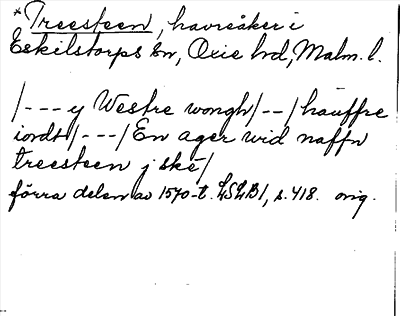 *Treesteen, havreåker i
Eskilstorps sn, Oxie hd, Malm. l.
/---y Westre wongh/--/hauffre
iordt/---/En ager wid naffn
treesteen j ské/
förra delen av 1570-t. LSLB1, s. 418. orig.